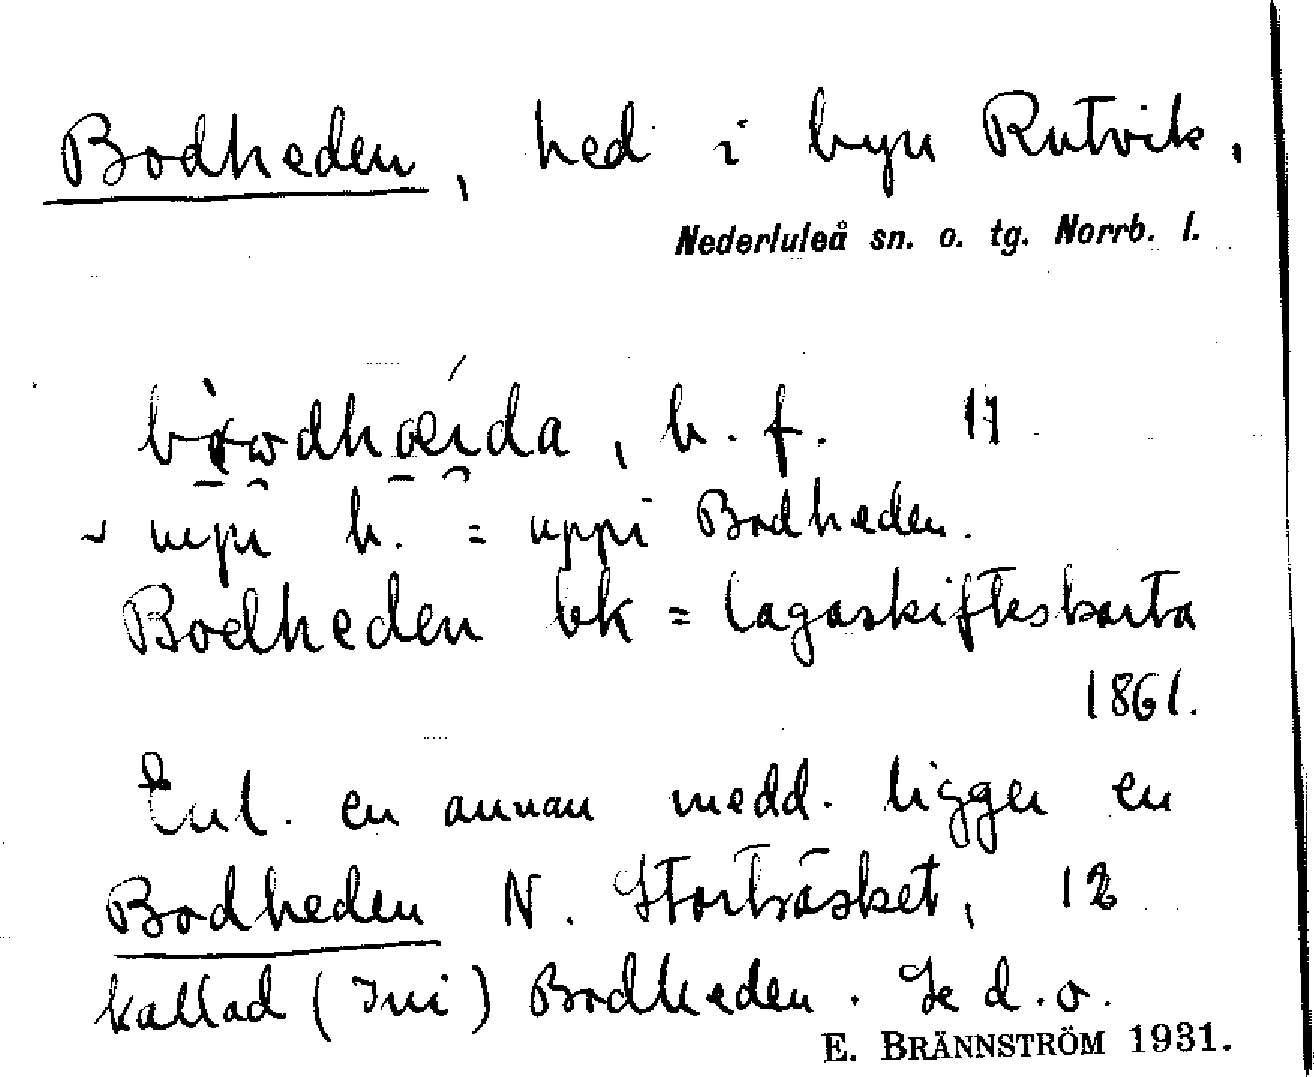 Bodheden, hed i byn Rutvik,
Nederluleå sn. o. tg. Norrb. l.
h. f. 11
h. = uppi Bodheden.
Bodheden bk = lagaskifteskarta
1861.
Enl. en annan medd. ligger en
Bodheden N. Storträsket, 12
kallad (Ini) Bodheden. Se d.o.
E. BRÄNNSTRÖM 1931.